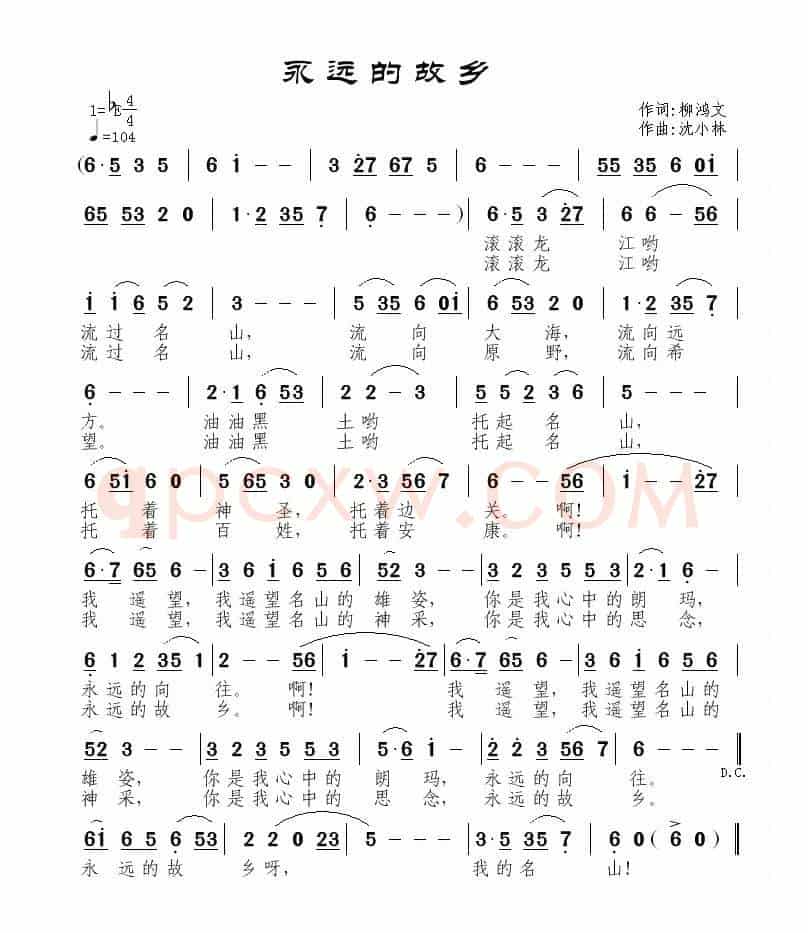 永远的故乡
1=♭E 4/4
♩=104
作词:柳鸿文
作曲:沈小林
(6·5 3 5 | 6 i - - | 3 27 67 5 | 6 - - - | 55 35 6 0i |
65 53 2 0 | 1·2 35 7 | 6 - - -) | 6·5 3 27 | 6 6 - 56 |
滚滚龙 江哟
滚滚龙 江哟
i i 6 5 2 | 3 - - - | 5 35 6 0i | 6 53 2 0 | 1·2 35 7 |
流过名 山, 流 向 大 海, 流向远
流过名 山, 流 向 原 野, 流向希
6 - - - | 2·1 6 53 | 2 2 - 3 | 5 5 2 3 6 | 5 - - - |
方。 油油黑 土哟 托起名 山,
望。 油油黑 土哟 托起名 山,
6 5i 6 0 | 5 65 3 0 | 2·3 56 7 | 6 - - 56 | i - - 27 |
托 着 神 圣, 托着边 关。 啊!
托 着 百 姓, 托着安 康。 啊!
qpcxw.COM
6·7 65 6 - | 3 6 i 6 5 6 | 52 3 - - | 3 2 3 5 5 3 | 2·1 6 - |
我 遥望, 我遥望名山的 雄姿, 你是我心中的 朗玛,
我 遥望, 我遥望名山的 神采, 你是我心中的 思念,
6 1 2 35 1 | 2 - - 56 | i - - 27 | 6·7 65 6 - | 3 6 i 6 5 6 |
永远的向 往。 啊! 我 遥望, 我遥望名山的
永远的故 乡。 啊! 我 遥望, 我遥望名山的
52 3 - - | 3 2 3 5 5 3 | 5·6 i - | 2 2 3 56 7 | 6 - - - ‖
D.C.
雄姿, 你是我心中的 朗 玛, 永远的向 往。
神采, 你是我心中的 思 念, 永远的故 乡。
6i 6 5 6 53 | 2 2 0 23 | 5 - - - | 3·5 35 7 | 6 0 (6 0) ‖
永 远的故 乡呀, 我的名 山!